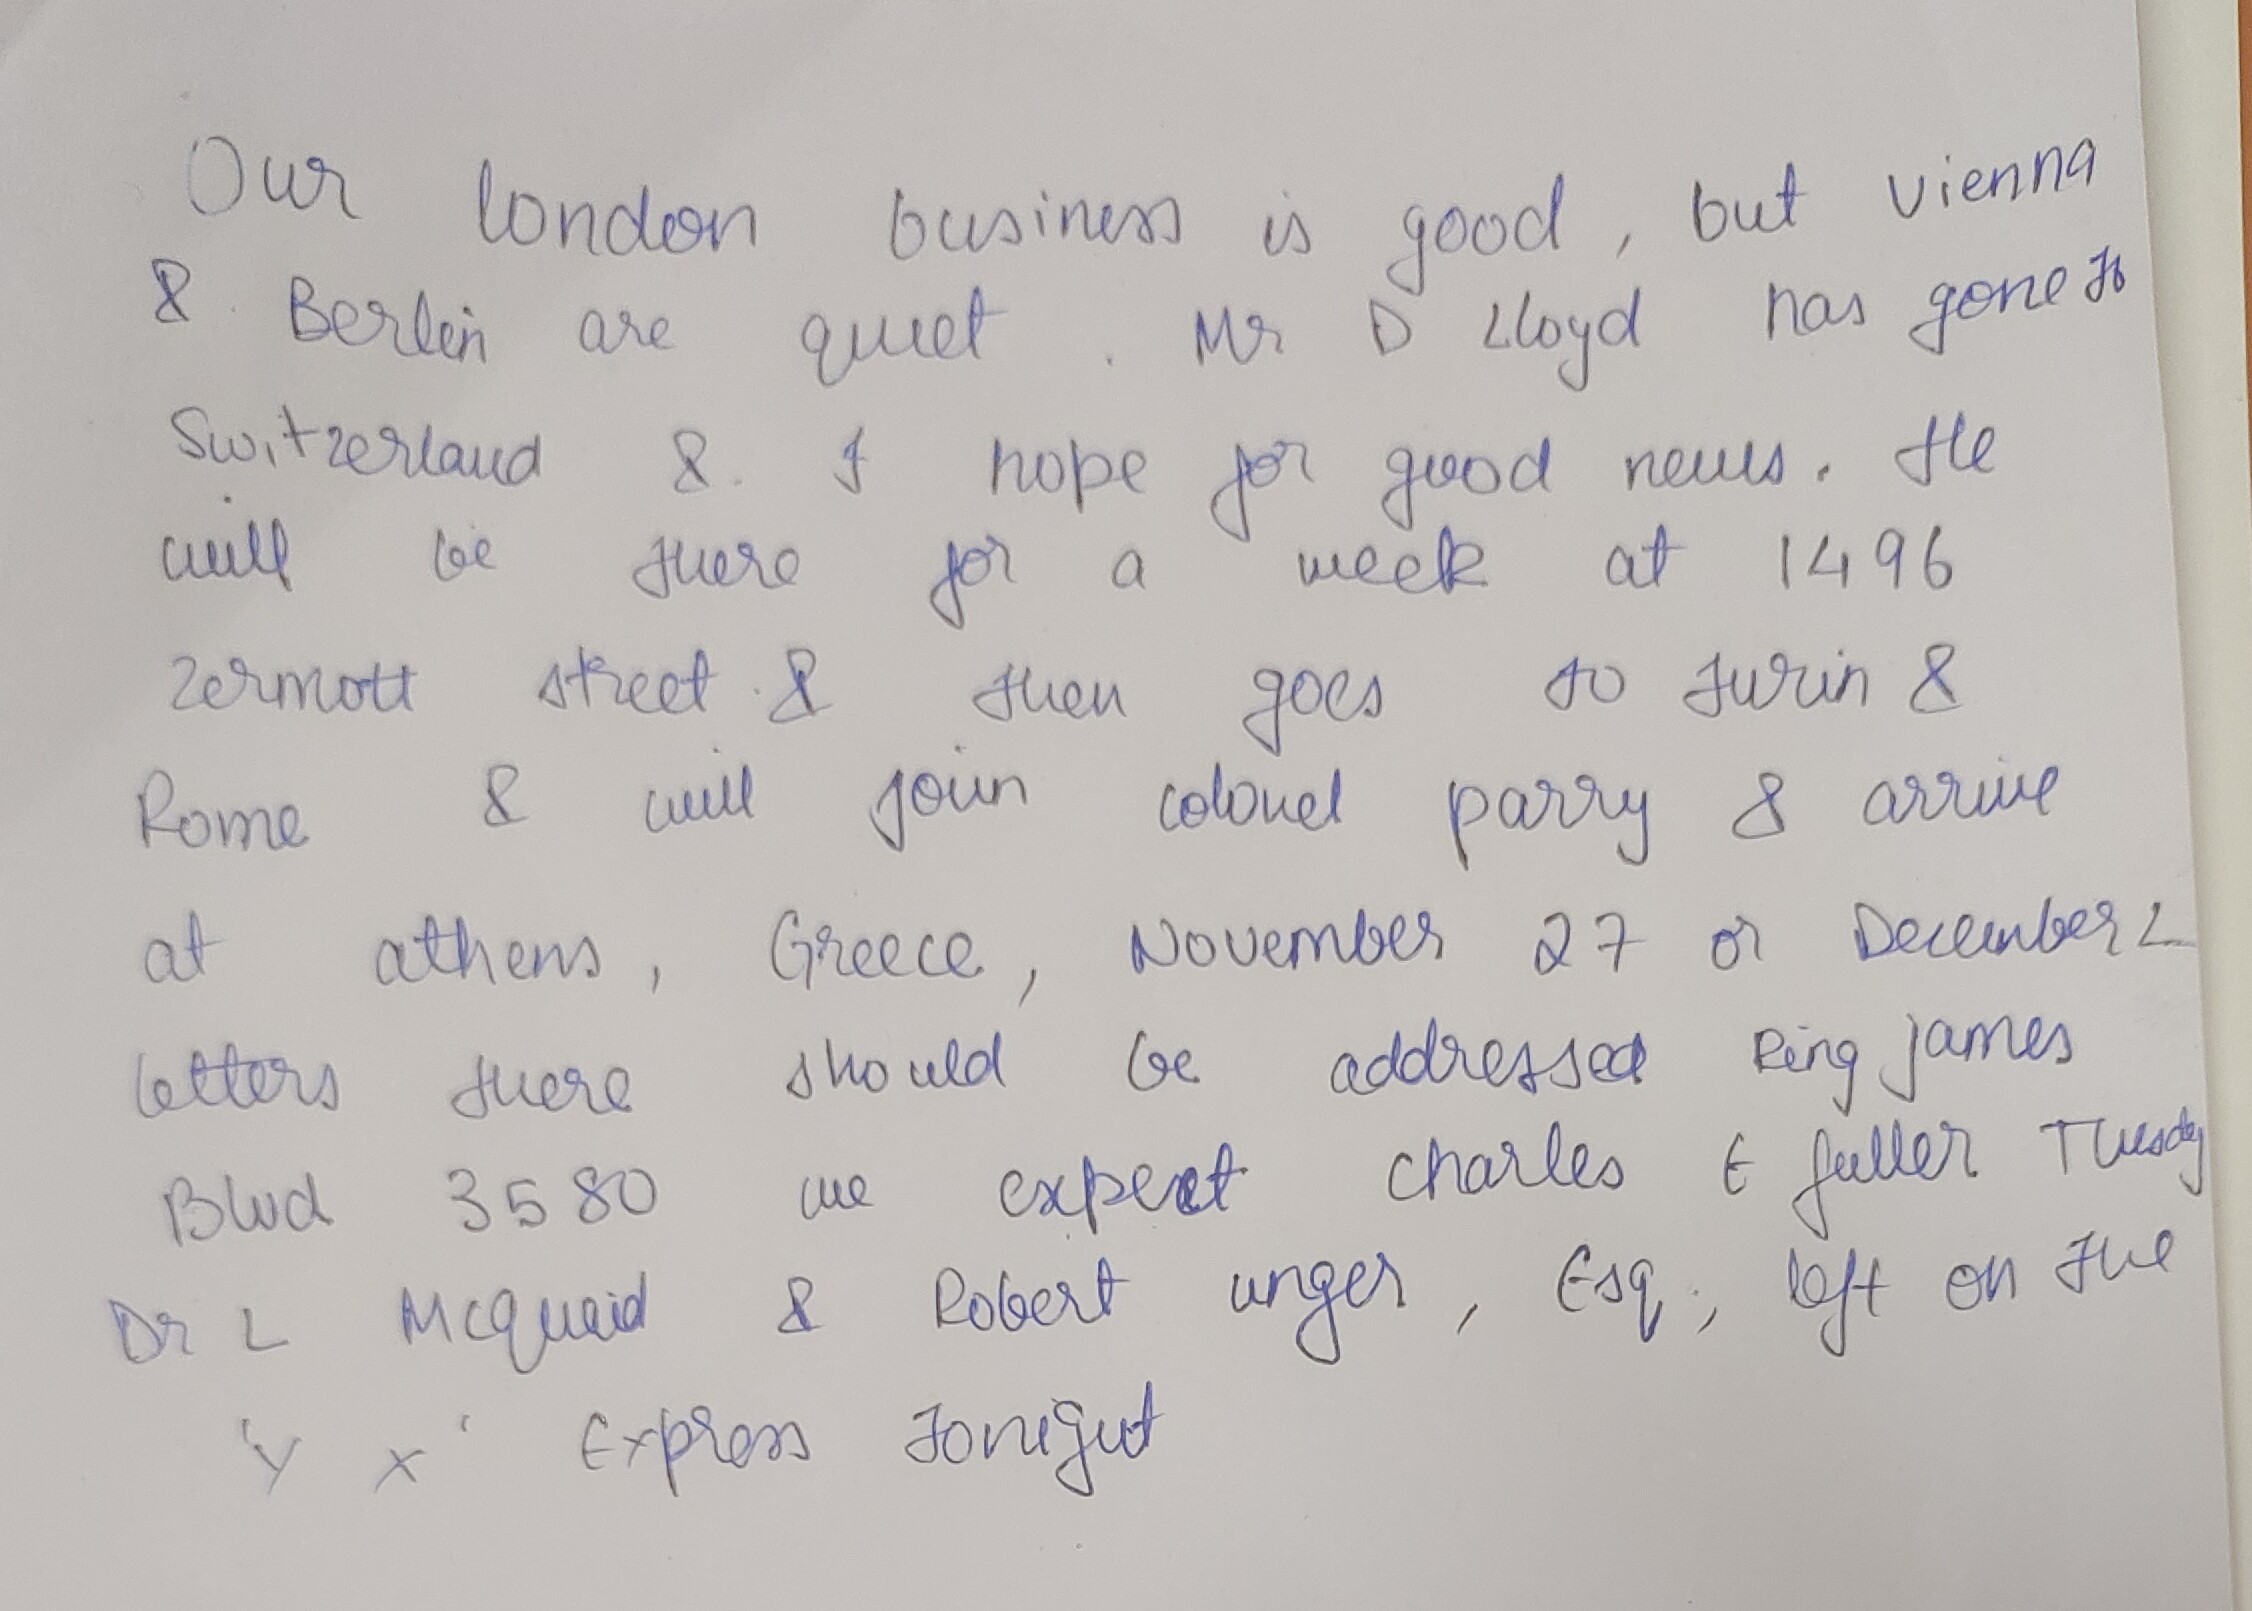 Our london business is good, but vienna
& Berlin are quiet. Mr D Lloyd has gone to
Switzerland & I hope for good news. He
will be there for a week at 1496
zermott street & then goes to turin &
Rome & will join colonel parry & arrive
at athens, Greece, November 27 or December 2
letters there should be addressed King James
Blvd 3580 we expect charles E fuller Tuesday
Dr L Mcquaid & Robert unger, Esq., left on the
'Y X' Express tonight